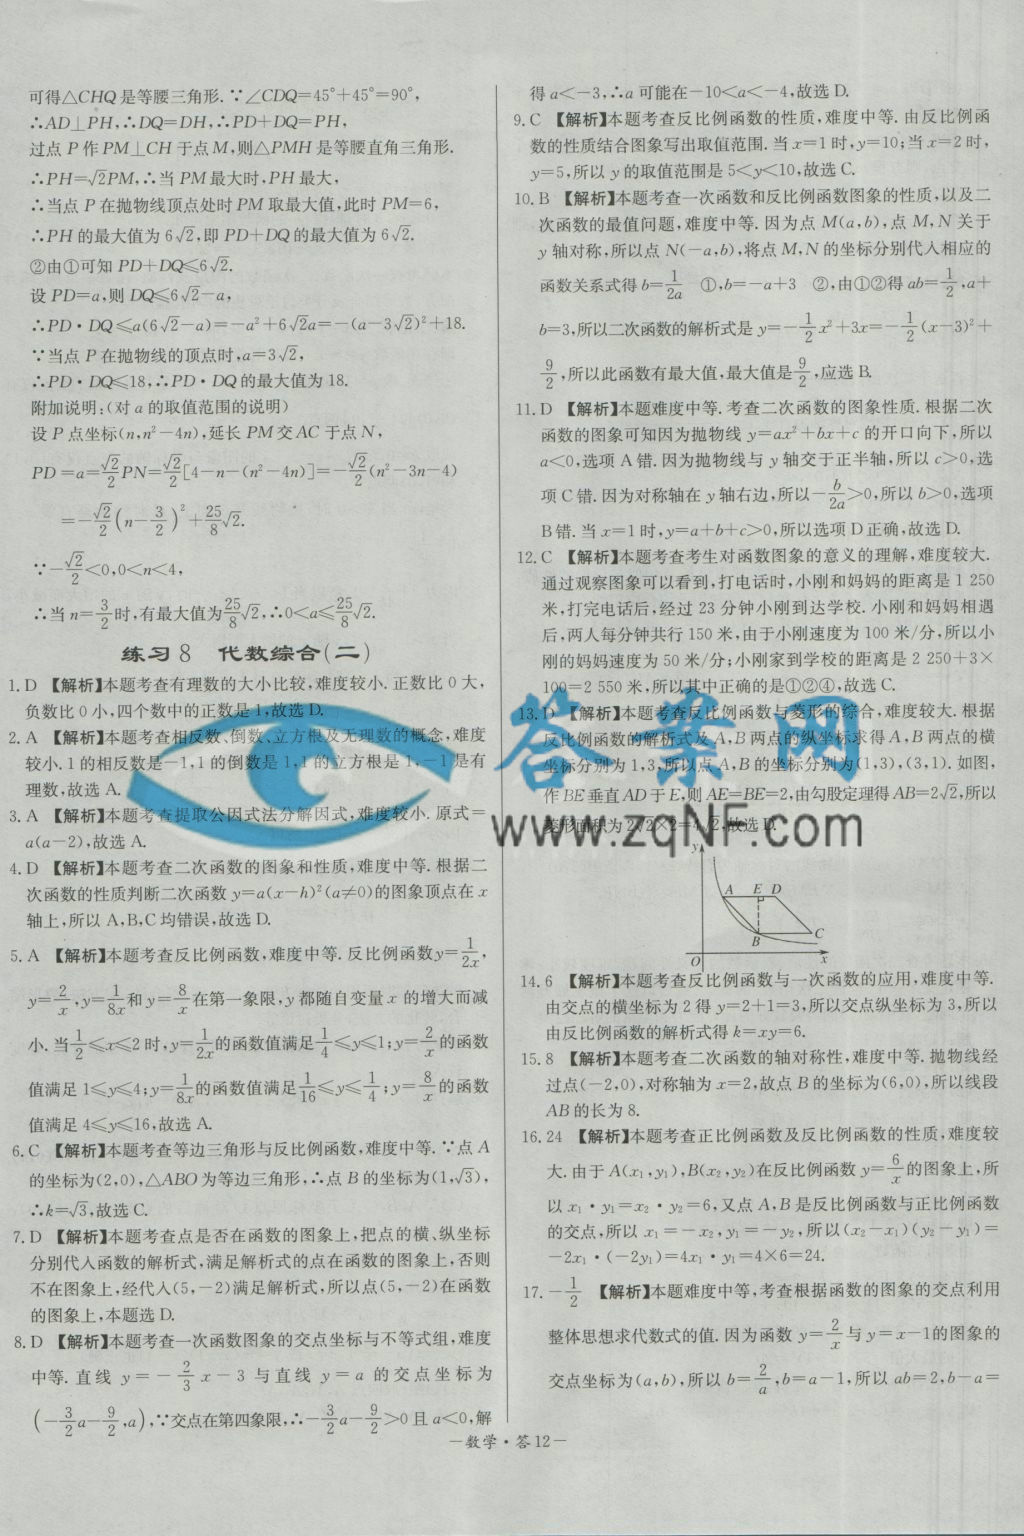 可得△CHQ是等腰三角形.∵∠CDQ=45°+45°=90°,
∴AD⊥PH,∴DQ=DH,∴PD+DQ=PH,
过点P作PM⊥CH于点M,则△PMH是等腰直角三角形.
∴PH=√2PM,∴当PM最大时,PH最大,
∴当点P在抛物线顶点处时PM取最大值,此时PM=6,
∴PH的最大值为6√2,即PD+DQ的最大值为6√2.
②由①可知PD+DQ≤6√2.
设PD=a,则DQ≤6√2-a,
∴PD·DQ≤a(6√2-a)=-a²+6√2a=-(a-3√2)²+18.
∵当点P在抛物线的顶点时,a=3√2,
∴PD·DQ≤18,∴PD·DQ的最大值为18.
附加说明:(对a的取值范围的说明)
设P点坐标(n,n²-4n),延长PM交AC于点N,
PD=a=√2/2PN=√2/2[4-n-(n²-4n)]=-√2/2(n²-3n-4)
=-√2/2(n-3/2)²+25/8√2.
∵-√2/2<0,0<n<4,
∴当n=3/2时,有最大值为25/8√2,∴0<a≤25/8√2.
练习8 代数综合(二)
1.D 【解析】本题考查有理数的大小比较,难度较小.正数比0大,
负数比0小,四个数中的正数是1,故选D.
2.A 【解析】本题考查相反数、倒数、立方根及无理数的概念,难度
较小.1的相反数是-1,1的倒数是1,1的立方根是1,-1是有
理数,故选A.
3.A 【解析】本题考查提取公因式法分解因式,难度较小.原式=
a(a-2),故选A.
4.D 【解析】本题考查二次函数的图象和性质,难度中等.根据二
次函数的性质判断二次函数y=a(x-h)²(a≠0)的图象顶点在x
轴上,所以A,B,C均错误,故选D.
5.A 【解析】本题考查反比例函数,难度中等.反比例函数y=1/2x,
y=2/x,y=1/8x和y=8/x在第一象限,y都随自变量x的增大而减
小.当1/2≤x≤2时,y=1/2x的函数值满足1/4≤y≤1;y=2/x的函数
值满足1≤y≤4;y=1/8x的函数值满足1/16≤y≤1/4;y=8/x的函数
值满足4≤y≤16,故选A.
6.C 【解析】本题考查等边三角形与反比例函数,难度中等.∵点A
的坐标为(2,0),△ABO为等边三角形,∴点B的坐标为(1,√3),
∴k=√3,故选C.
7.D 【解析】本题考查点是否在函数的图象上,把点的横、纵坐标
分别代入函数的解析式,满足解析式的点在函数的图象上,否则
不在图象上,经代入(5,-2)满足解析式,所以点(5,-2)在函数
的图象上,本题选D.
8.D 【解析】本题考查一次函数图象的交点坐标与不等式组,难度
中等.直线y=-2/3x-3与直线y=a的交点坐标为
(-3/2a-9/2,a),∵交点在第四象限,∴-3/2a-9/2>0且a<0,解
得a<-3,∴a可能在-10<a<-4,故选D.
9.C 【解析】本题考查反比例函数的性质,难度中等.由反比例函
数的性质结合图象写出取值范围.当x=1时,y=10;当x=2时,
y=5,所以y的取值范围是5<y<10,故选C.
10.B 【解析】本题考查一次函数和反比例函数图象的性质,以及二
次函数的最值问题,难度中等.因为点M(a,b),点M,N关于
y轴对称,所以点N(-a,b),将点M,N的坐标分别代入相应的
函数关系式得b=1/2a ①,b=-a+3 ②,由①②得ab=1/2,a+
b=3,所以二次函数的解析式是y=-1/2x²+3x=-1/2(x-3)²+
9/2,所以此函数有最大值,最大值是9/2,应选B.
11.D 【解析】本题难度中等.考查二次函数的图象性质.根据二次
函数的图象可知因为抛物线y=ax²+bx+c的开口向下,所以
a<0,选项A错.因为抛物线与y轴交于正半轴,所以c>0,选
项C错.因为对称轴在y轴右边,所以-b/2a>0,所以b>0,选项
B错.当x=1时,y=a+b+c>0,所以选项D正确,故选D.
12.C 【解析】本题考查考生对函数图象的意义的理解,难度较大.
通过观察图象可以看到,打电话时,小刚和妈妈的距离是1 250
米,打完电话后,经过23分钟小刚到达学校.小刚和妈妈相遇
后,两人每分钟共行150米,由于小刚速度为100米/分,所以小
刚的妈妈速度为50米/分;小刚家到学校的距离是2 250+3×
100=2 550米,所以其中正确的是①②④,故选C.
13.D 【解析】本题考查反比例函数与菱形的综合,难度较大.根据
反比例函数的解析式及A,B两点的纵坐标求得A,B两点的横
坐标分别为1,3,所以点A,B的坐标分别为(1,3),(3,1).如图,
作BE垂直AD于E,则AE=BE=2,由勾股定理得AB=2√2,所以
菱形面积为2√2×2=4√2,故选D.
答案网
www.zqNF.com
y
A E D
B C
O x
14.6 【解析】本题考查反比例函数与一次函数的应用,难度中等.
由交点的横坐标为2得y=2+1=3,所以交点纵坐标为3,所以
由反比例函数的解析式得k=xy=6.
15.8 【解析】本题考查二次函数的轴对称性,难度中等.抛物线经
过点(-2,0),对称轴为x=2,故点B的坐标为(6,0),所以线段
AB的长为8.
16.24 【解析】本题考查正比例函数及反比例函数的性质,难度较
大.由于A(x₁,y₁),B(x₂,y₂)在反比例函数y=6/x的图象上,所
以x₁·y₁=x₂·y₂=6,又点A,B是反比例函数与正比例函数
的交点,所以x₁=-x₂,y₁=-y₂,所以(x₂-x₁)(y₂-y₁)=
-2x₁·(-2y₁)=4x₁·y₁=4×6=24.
17.-1/2 【解析】本题难度中等,考查根据函数的图象的交点利用
整体思想求代数式的值.因为函数y=2/x与y=x-1的图象的
交点坐标为(a,b),所以b=2/a,b=a-1,所以ab=2,b-a=
—数学·答12—